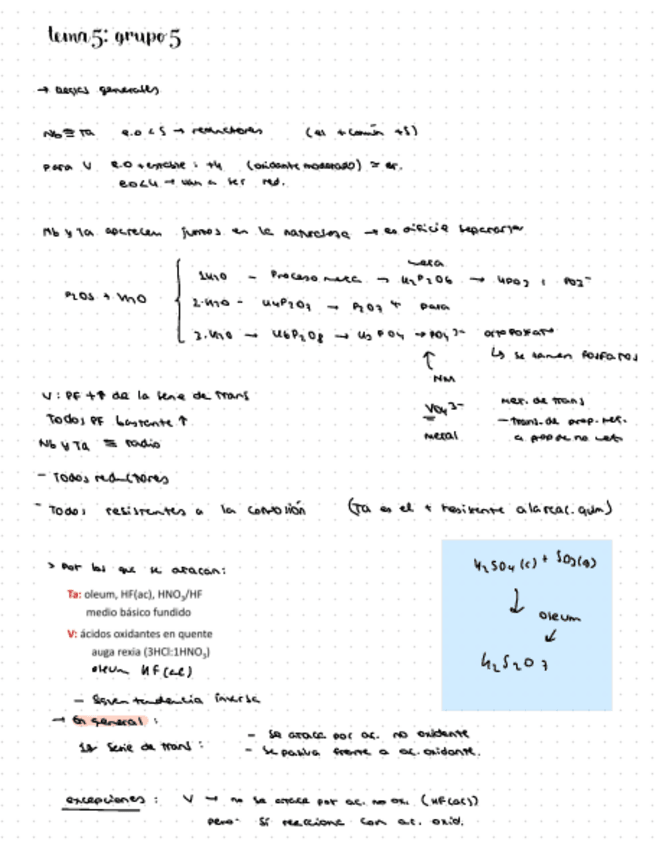 tema 5: grupo 5
→ generales
Nb ≅ Ta e.o < 5 → reductores (el + común +5)
para V e.o + estable : +4 (oxidante moderado)
e.o < 4 → van a ser red.
Nb y Ta aparecen juntos en la naturaleza → es difícil separarlos
meta
1H2O - Proceso meta → H2P2O6 → HPO3 : PO3-
P2O5 + nH2O
2·H2O - H4P2O7 → P2O7 4- para
3·H2O → H6P2O8 → H3PO4 → PO4 3- ortofosfato
↳ se llaman fosfatos
↑
NM
V : PF ↑↑ de la serie de trans
VO4 3-
Met. de trans
Todos PF bastante ↑
metal
- trans. de prop. met.
a prop de no met.
Nb y Ta ≅ radio
- Todos reductores
- Todos resistentes a la corrosión (Ta es el + resistente a la reac. quim)
> Por los que se atacan:
H2SO4 (c) + SO3(g)
Ta: oleum, HF(ac), HNO3/HF
medio básico fundido
↓ oleum
V: ácidos oxidantes en quente
auga rexia (3HCl:1HNO3)
oleum HF(ac)
H2S2O7
- Siguen tendencia inversa
→ En general :
1ª Serie de trans :
- Se ataca por ac. no oxidante
- Se pasiva frente a ac. oxidante.
excepciones : V → no se ataca por ac. no ox. (HF(ac))
pero sí reacciona con ac. oxid.